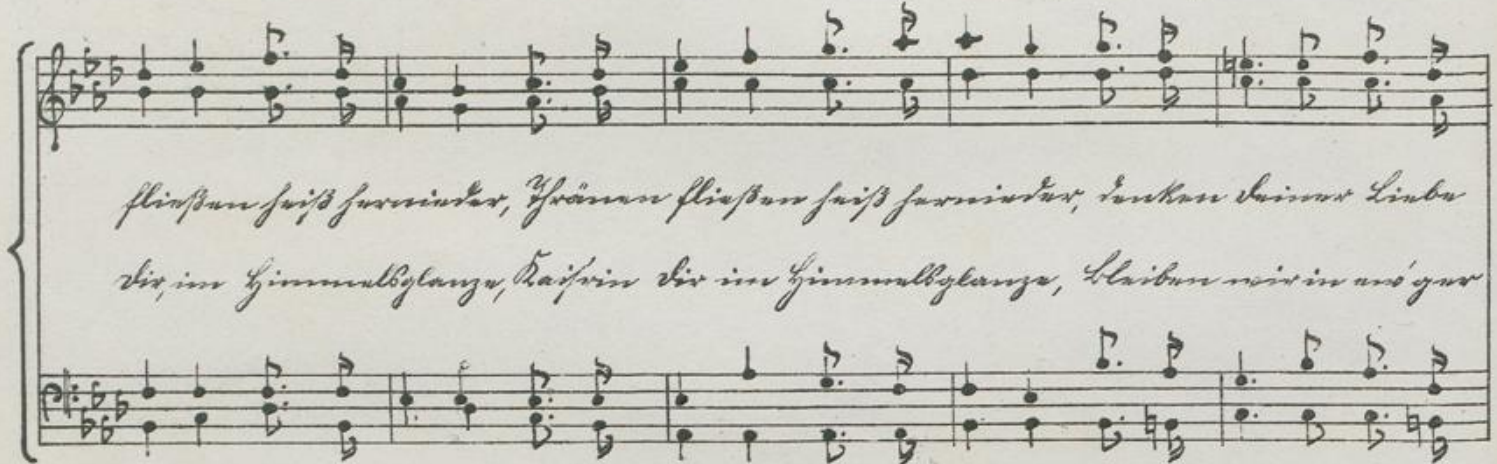 fließen heiß hernieder, Thränen fließen heiß hernieder, denken deiner Liebe
dir, im Himmelsglanze, Kaisrin dir im Himmelsglanze, bleiben wir in ew'ger